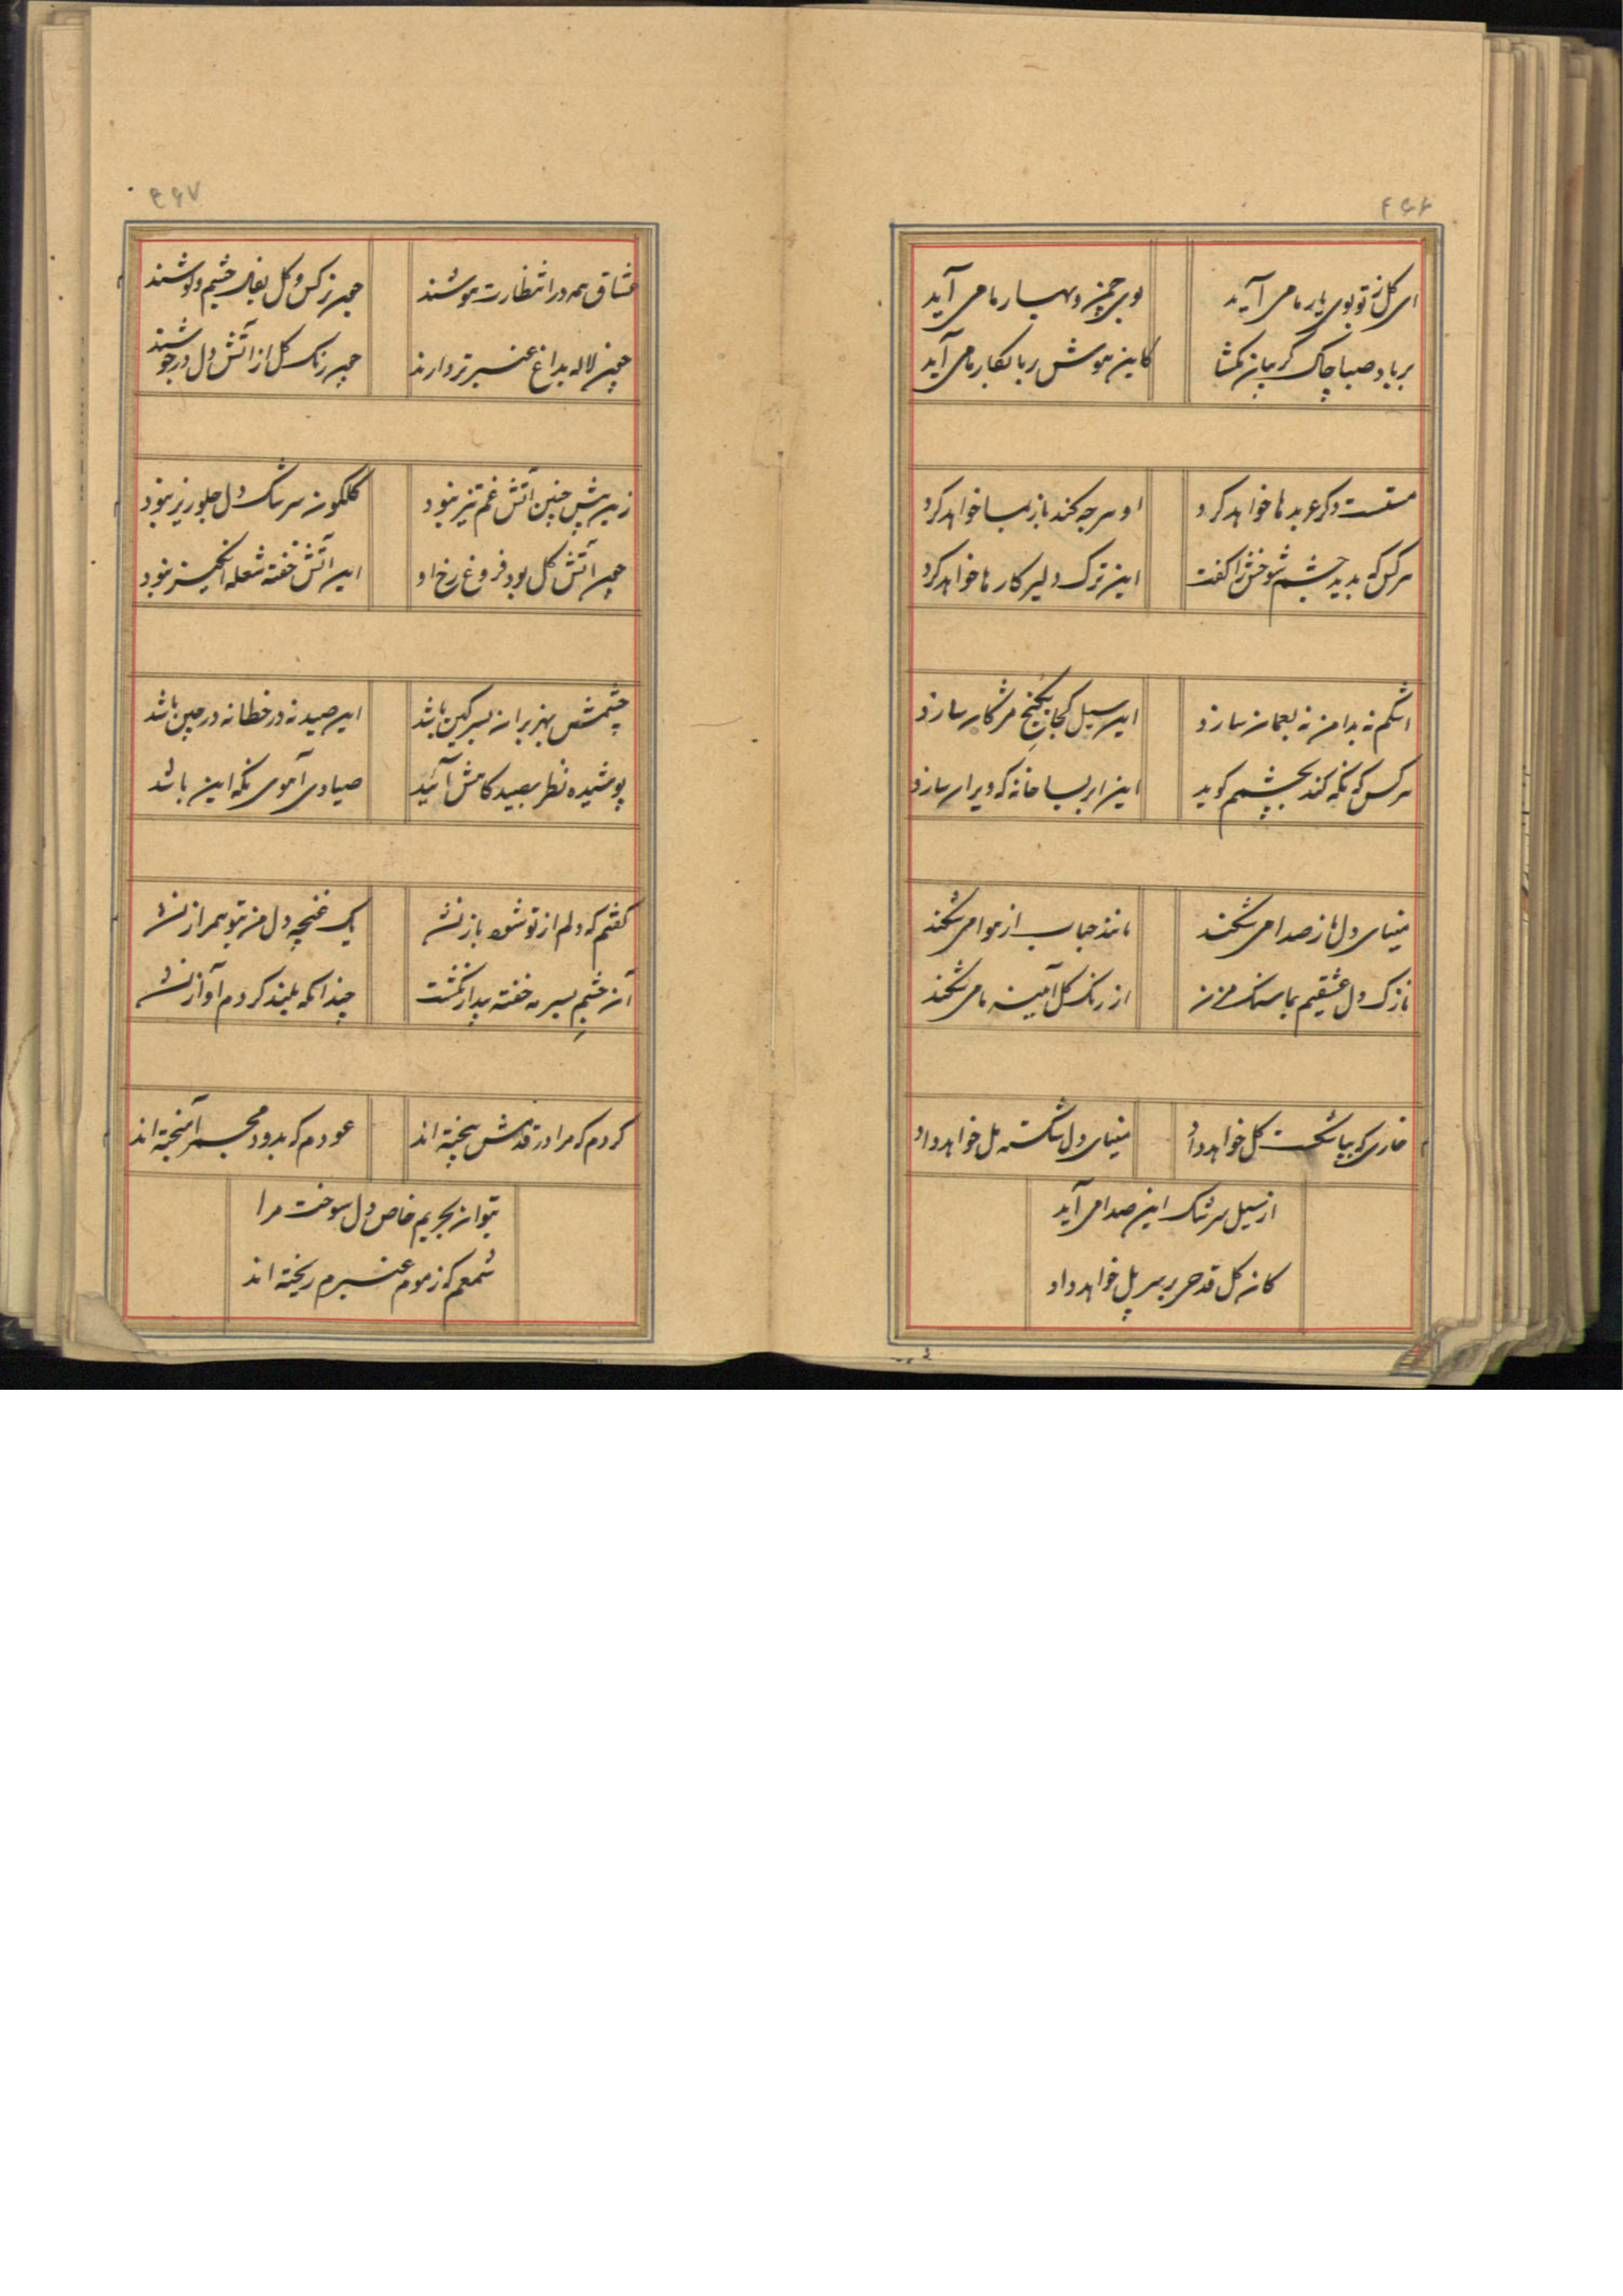 ۴۶۶
ای گل ز تو بوی یار ما می آید
بوی چمن و بهار ما می آید
بر باد صبا چاک گریبان مگشا
کاین هوش ربا بکار ما می آید
مستست و دگر عربدها خواهد کرد
او هرچه کند باز بما خواهد کرد
هر کس که بدید چشم شوخش را گفت
این ترک دلیر کارها خواهد کرد
اشکم نه بدامن نه بعمان سازد
این سیل کجا بکنج مژگان سازد
هر کس که نگه کند بچشمم گوید
این ابر بسا خانه که ویران سازد
مینای دل ما ز صدا می شکند
مانند حباب از هوا می شکند
نازک دل عشقیم بما سنگ مزن
از رنگ گل آئینه ما می شکند
خاری که بپا شکست گل خواهد داد
مینای دل شکسته مل خواهد داد
از سیل سرشک این صدا می آید
کانه گل قدحی بر سر پل خواهد داد
۴۶۷
عشاق همه در انتظارت هوشند
چون نرگس و گل بغیر چشم و گوشند
چون لاله بداغ عنبر تر دارند
چون رنگ گل از آتش دل در جوشند
زین پیش چنین آتش غم تیز نبود
گلگون سرشک دل جلوریز نبود
چون آتش گل بود فروغ رخ او
این آتش خفته شعله انگیز نبود
چشمش بهزبران بسر کین باشد
این صید نه در خطا نه در چین باشد
پوشیده نظر بصید گاهش آئید
صیادی آهوی نگه این باشد
گفتم که دلم از تو شود باز نشد
یک غنچه دل من بتو همراز نشد
آن چشم سیه خفته بیدار نگشت
چندانکه بلند کردم آواز نشد
گردم که مرا در قدمش بیخته اند
عودم که بدود مجمر آمیخته اند
بتوان بحریم خاص دل سوخت مرا
شمعم که ز موم عنبرم ریخته اند